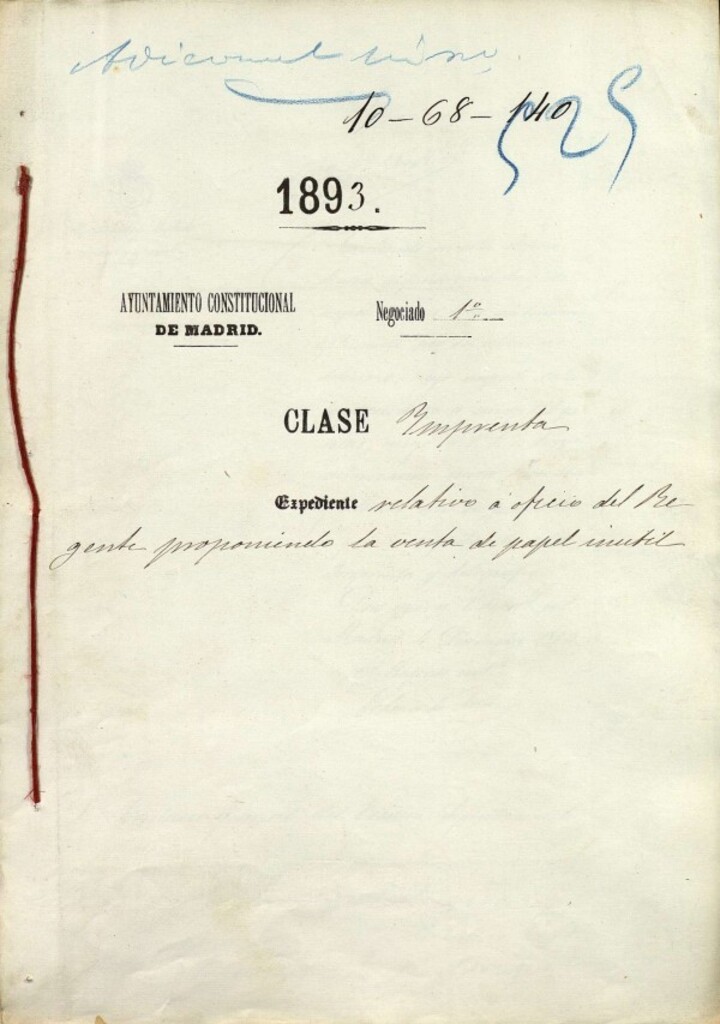 10-68-140
525
1893.
AYUNTAMIENTO CONSTITUCIONAL
DE MADRID.
Negociado 1º
CLASE Imprenta
Expediente relativo á oficio del Re-
gente proponiendo la venta de papel inutil